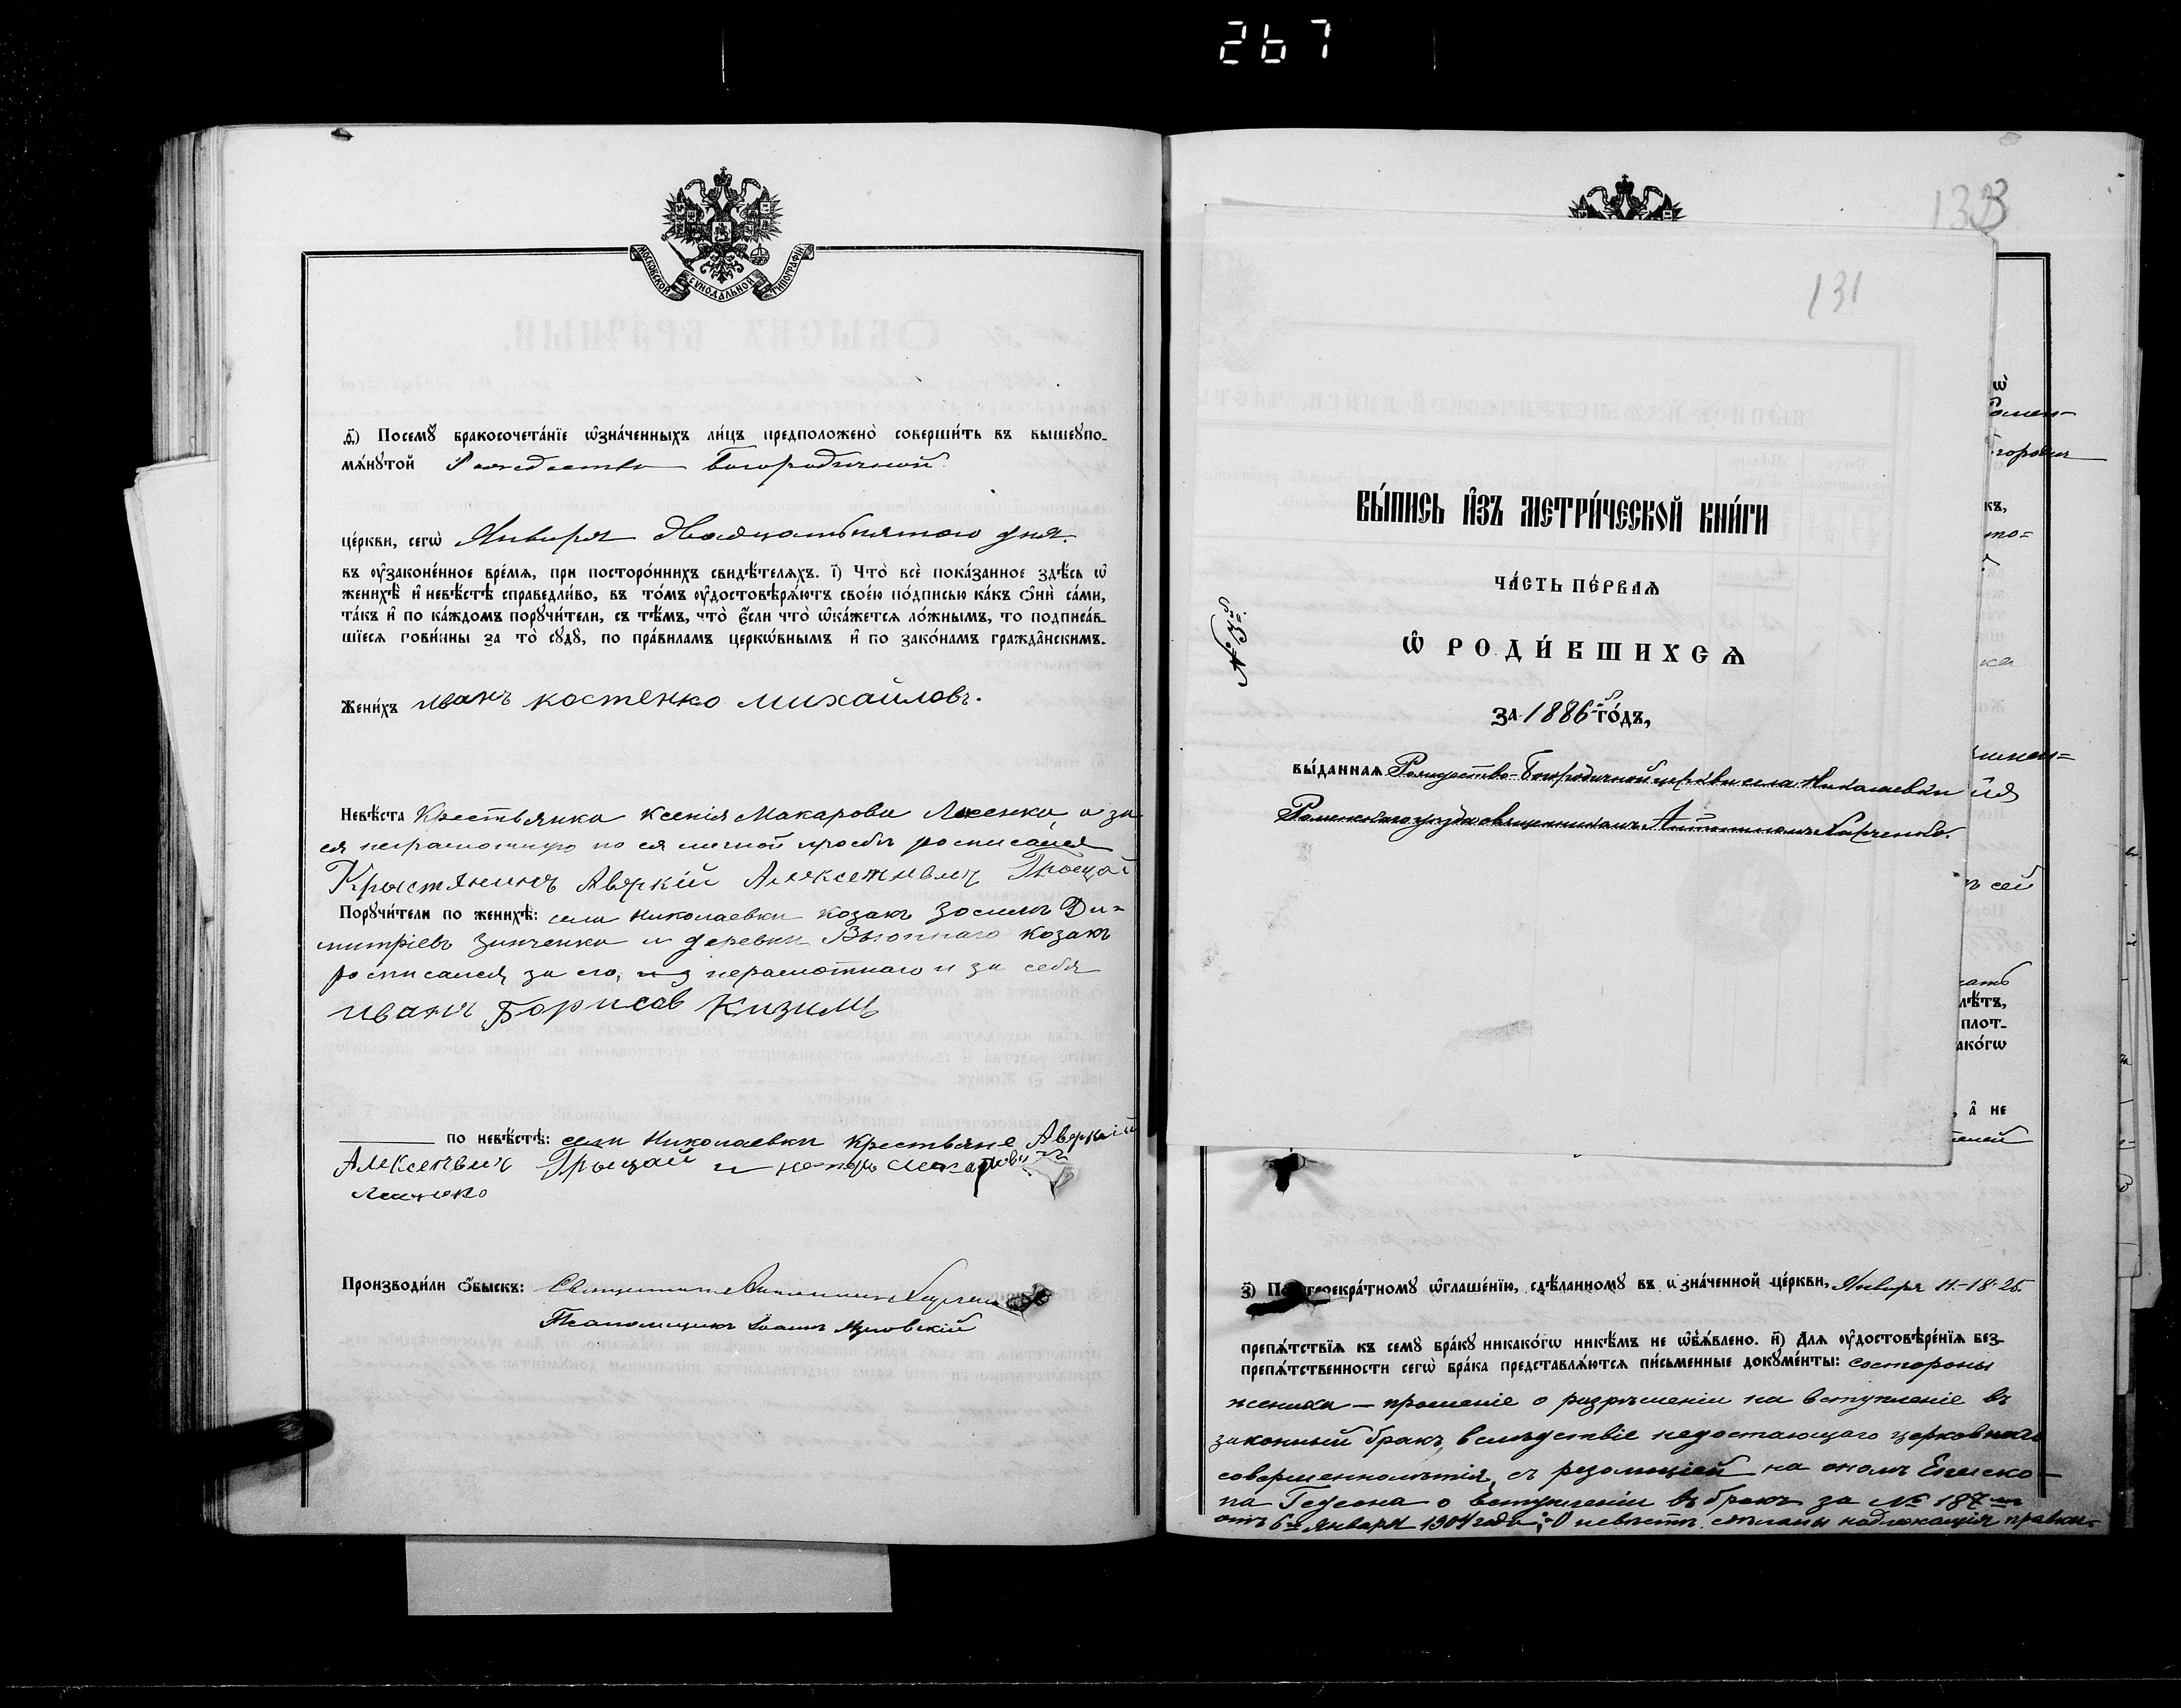 267
МОСКОВСКОЙ СУНОДАЛЬНОЙ ТИПОГРАФІИ
д҃) Посемꙋ̀ бракосочета́нїе ѡ҆зна́ченныхъ ли́цъ предположено̀ соверши́ть въ вышеꙋпо-
мѧ́нꙋтой Рождество Богородичной
це́ркви, сегѡ̀ Января двадцатьпятого дня.
въ ᲂу҆законе́нное вре́мѧ, при посторо́ннихъ свидѣ́телѧхъ. і҃) Что̀ всѐ пока́занное здѣ́сь ѡ҆
женихѣ̀ и҆ невѣ́стѣ справедли́во, въ то́мъ ᲂу҆достовѣрѧ́ютъ свое́ю по́дписью ка́къ ѻ҆нѝ са́ми,
та́къ и҆ по ка́ждомъ порꙋчи́тели, съ тѣ́мъ, что̀ е҆́сли что̀ ѡ҆ка́жетсѧ ло́жнымъ, то подписа́в-
шїесѧ пови́нны за то̀ сꙋдꙋ̀, по пра́виламъ церкѡ́внымъ и҆ по зако́намъ гражда́нскимъ.
Жени́хъ иванъ костенко михайловъ.
Невѣ́ста Крестьянка Ксенія Макарова Лысенко, а за
ея неграмотную по ея личной просьбѣ росписался
Крыстянинъ Аверкій Алексеевичъ Грыцай
Порꙋчи́тели по женихѣ̀: села Николаевки козакъ Зосимъ Ди-
митріевъ Зинченко и деревни Вьюнного козакъ
росписался за его, неграмотного и за себя
иванъ Борисов Кизимъ
по невѣ́стѣ: села Николаевки крестьяне Аверкій
Алексеевичъ Грыцай и Макарович
Производи́ли ѻ҆́быскъ: Священникъ Антоний Харченко
Псаломщикъ Іоаннъ
133
131
ВЫ́ПИСЬ И҆ЗЪ МЕТРИ́ЧЕСКОЙ КНИ́ГИ
ЧА́СТЬ ПЕ́РВАѦ
Ѡ҆ РОДИ́ВШИХСѦ
за 1886й го́дъ,
вы́даннаѧ Рождество-Богородичной церкви села Николаевки
Роменского уѣзда священникомъ Харченко.
з҃) По троекра́тномꙋ ѡ҆глаше́нїю, сдѣ́ланномꙋ въ ѡ҆зна́ченной це́ркви, Января 11-18-25.
препѧ́тствїѧ къ семꙋ̀ бра́кꙋ никако́гѡ никѣ́мъ не ѡ҆б̾ѧ́влено. и҃) Длѧ ᲂу҆достовѣре́нїѧ без-
препѧ́тственности сегѡ̀ бра́ка представлѧ́ютсѧ пи́сьменные докꙋме́нты: со стороны
жениха — прошеніе о разрѣшеніи на вступленіе въ
законный бракъ, вслѣдствіе недостающаго церковнаго
совершеннолѣтія, съ резолюціей на ономъ Еписко-
па Гедеона о вступленіи въ бракъ за № 187-мъ
отъ 6го Января 1904 года; О невѣстѣ сдѣланы надлежащія правки.